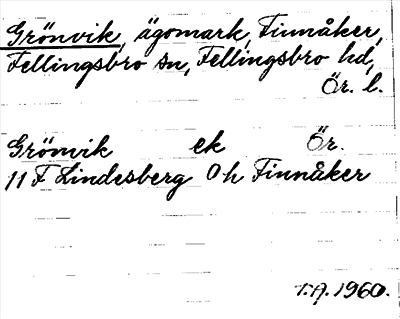 Grönvik, ägomark, Finnåker,
Fellingsbro sn, Fellingsbro hd,
Ör. l.
Grönvik ek Ör.
11 F Lindesberg 0 h Finnåker
T.A. 1960.